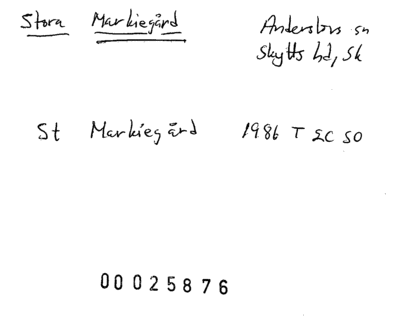 Stora Markiegård Anderslövs sn
Skytts hd, Sk
St Markiegård 1986 T EC SO
00025876